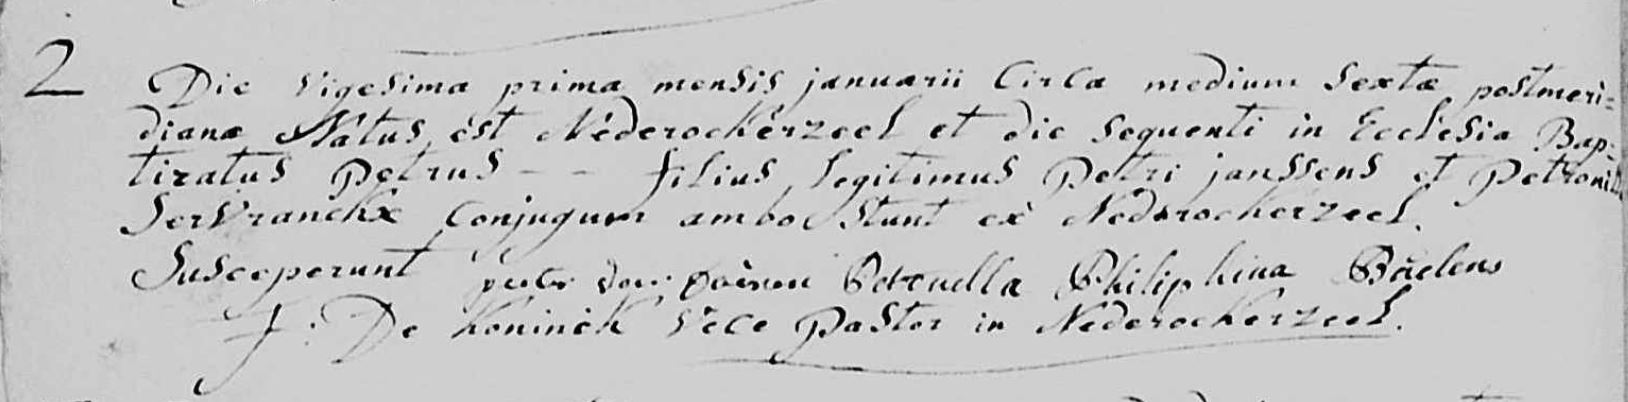 2 Die Vigesima prima mensis januarii Circa medium Sextæ postmeri=
dianæ Natus est Nederockerzeel et die sequenti in Ecclesia Bap=
tizatus Petrus - - filius legitimus Petri janssens et Petronillæ
Servranckx Conjugum ambo Stunt ex Nederockerzeel.
Susceperunt Petronella Philiphina Baelens
J: De Koninck Vece Pastor in Nederockerzeel.